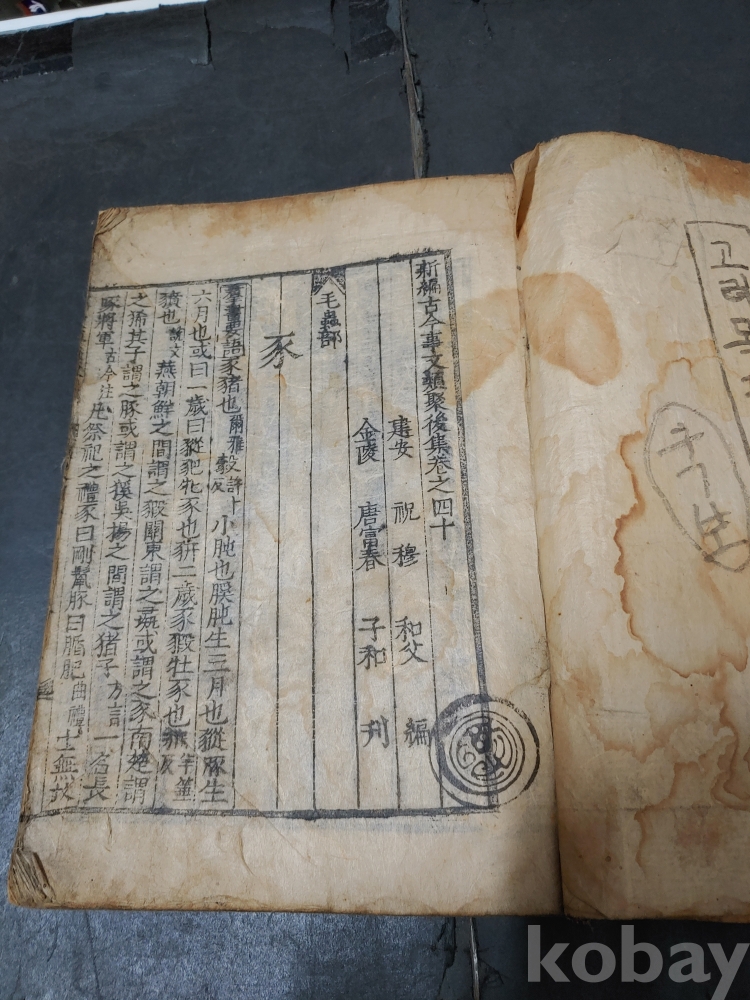 新編古今事文類聚後集卷之四十
建安 祝穆 和父 編
金陵 唐富春 子和 刋
毛蟲部
豕
羣書要語豕猪也爾雅
小㹠也䐁㹠生三月也豵豚生
六月也或曰一歲曰豵豝牝豕也豣二歲豕豭牡豕也
豶也說文燕朝鮮之間謂之豭關東謂之彘或謂之豕南楚謂
之豨其子謂之豚或謂之豯吳揚之間謂之猪子方言一名長
喙將軍古今注凡祭祀之禮豕曰剛鬣豚曰腯肥曲禮士無故
고려목
kobay